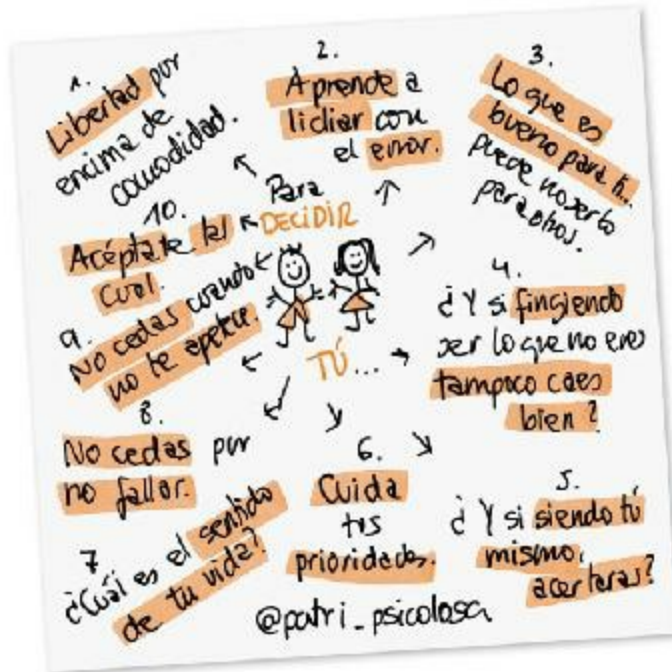 1.
Libertad por
encima de
comodidad.
2.
Aprende a
lidiar con
el error.
3.
Lo que es
bueno para ti...
puede no serlo
para otros.
Para
DECIDIR
TÚ...
4.
¿Y si fingiendo
ser lo que no eres
tampoco caes
bien?
5.
¿Y si siendo tú
mismo,
acertaras?
6.
Cuida
tus
prioridades.
7
¿Cuál es el sentido
de tu vida?
8.
No cedas por
no fallar.
9.
No cedas cuando
no te apetece.
10.
Acéptate tal
cual.
@patri_psicologa